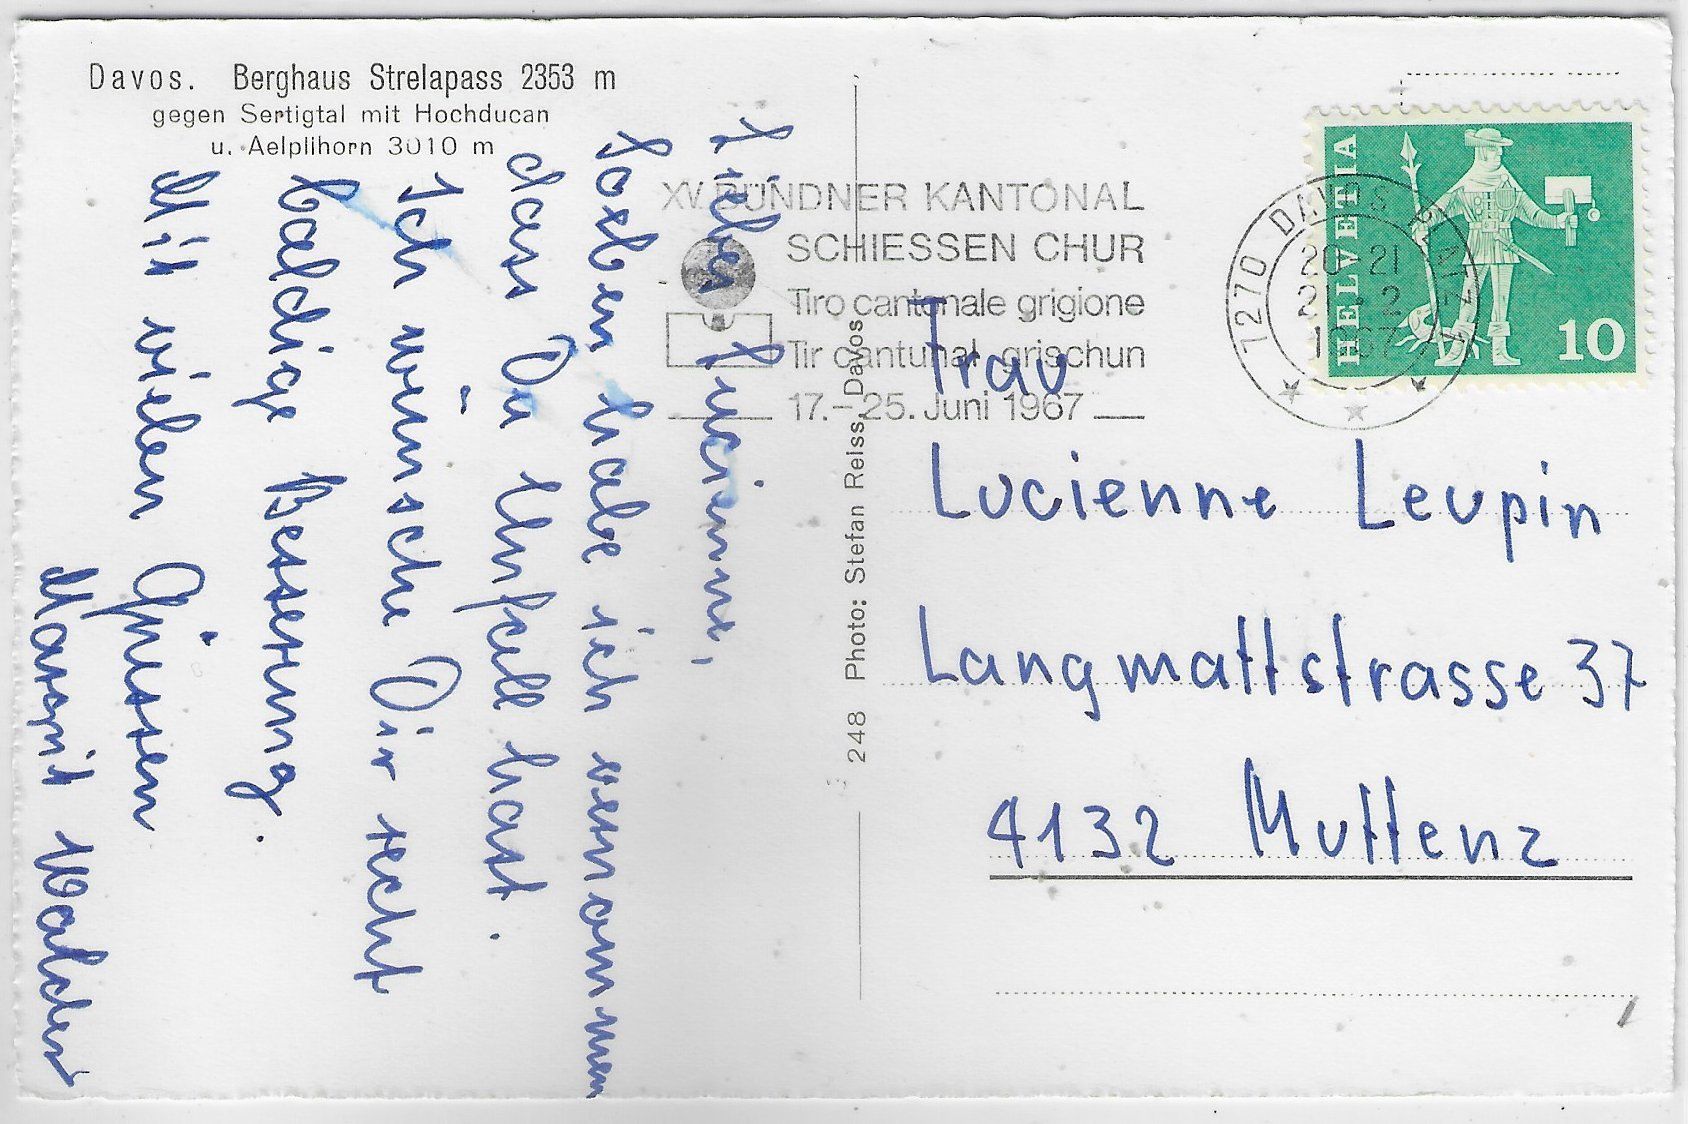 Davos. Berghaus Strelapass 2353 m
gegen Sertigtal mit Hochducan
u. Aelplihorn 3010 m
Liebes Lucienne,
Soeben habe ich vernommen
dass Du Unfall hast.
Ich wünsche Dir recht
baldige Besserung.
Mit vielen Grüssen
Margrit Walder
248 Photo: Stefan Reiss, Davos
XV. BÜNDNER KANTONAL
SCHIESSEN CHUR
Tiro cantonale grigione
Tir cantunal grischun
17.–25. Juni 1967
7270 DAVOS PLATZ
20-21
1967
HELVETIA
10
Frau
Lucienne Leupin
Langmattstrasse 37
4132 Muttenz